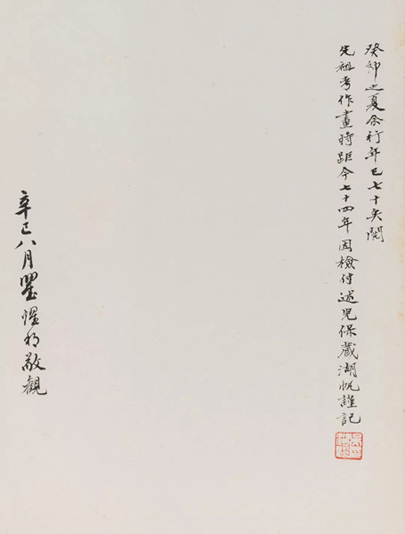 癸卯之夏余行年已七十矣閱
先祖考作畫時距今七十四年因檢付述兒保藏湖帆謹記
辛巳八月瞿惺初敬觀